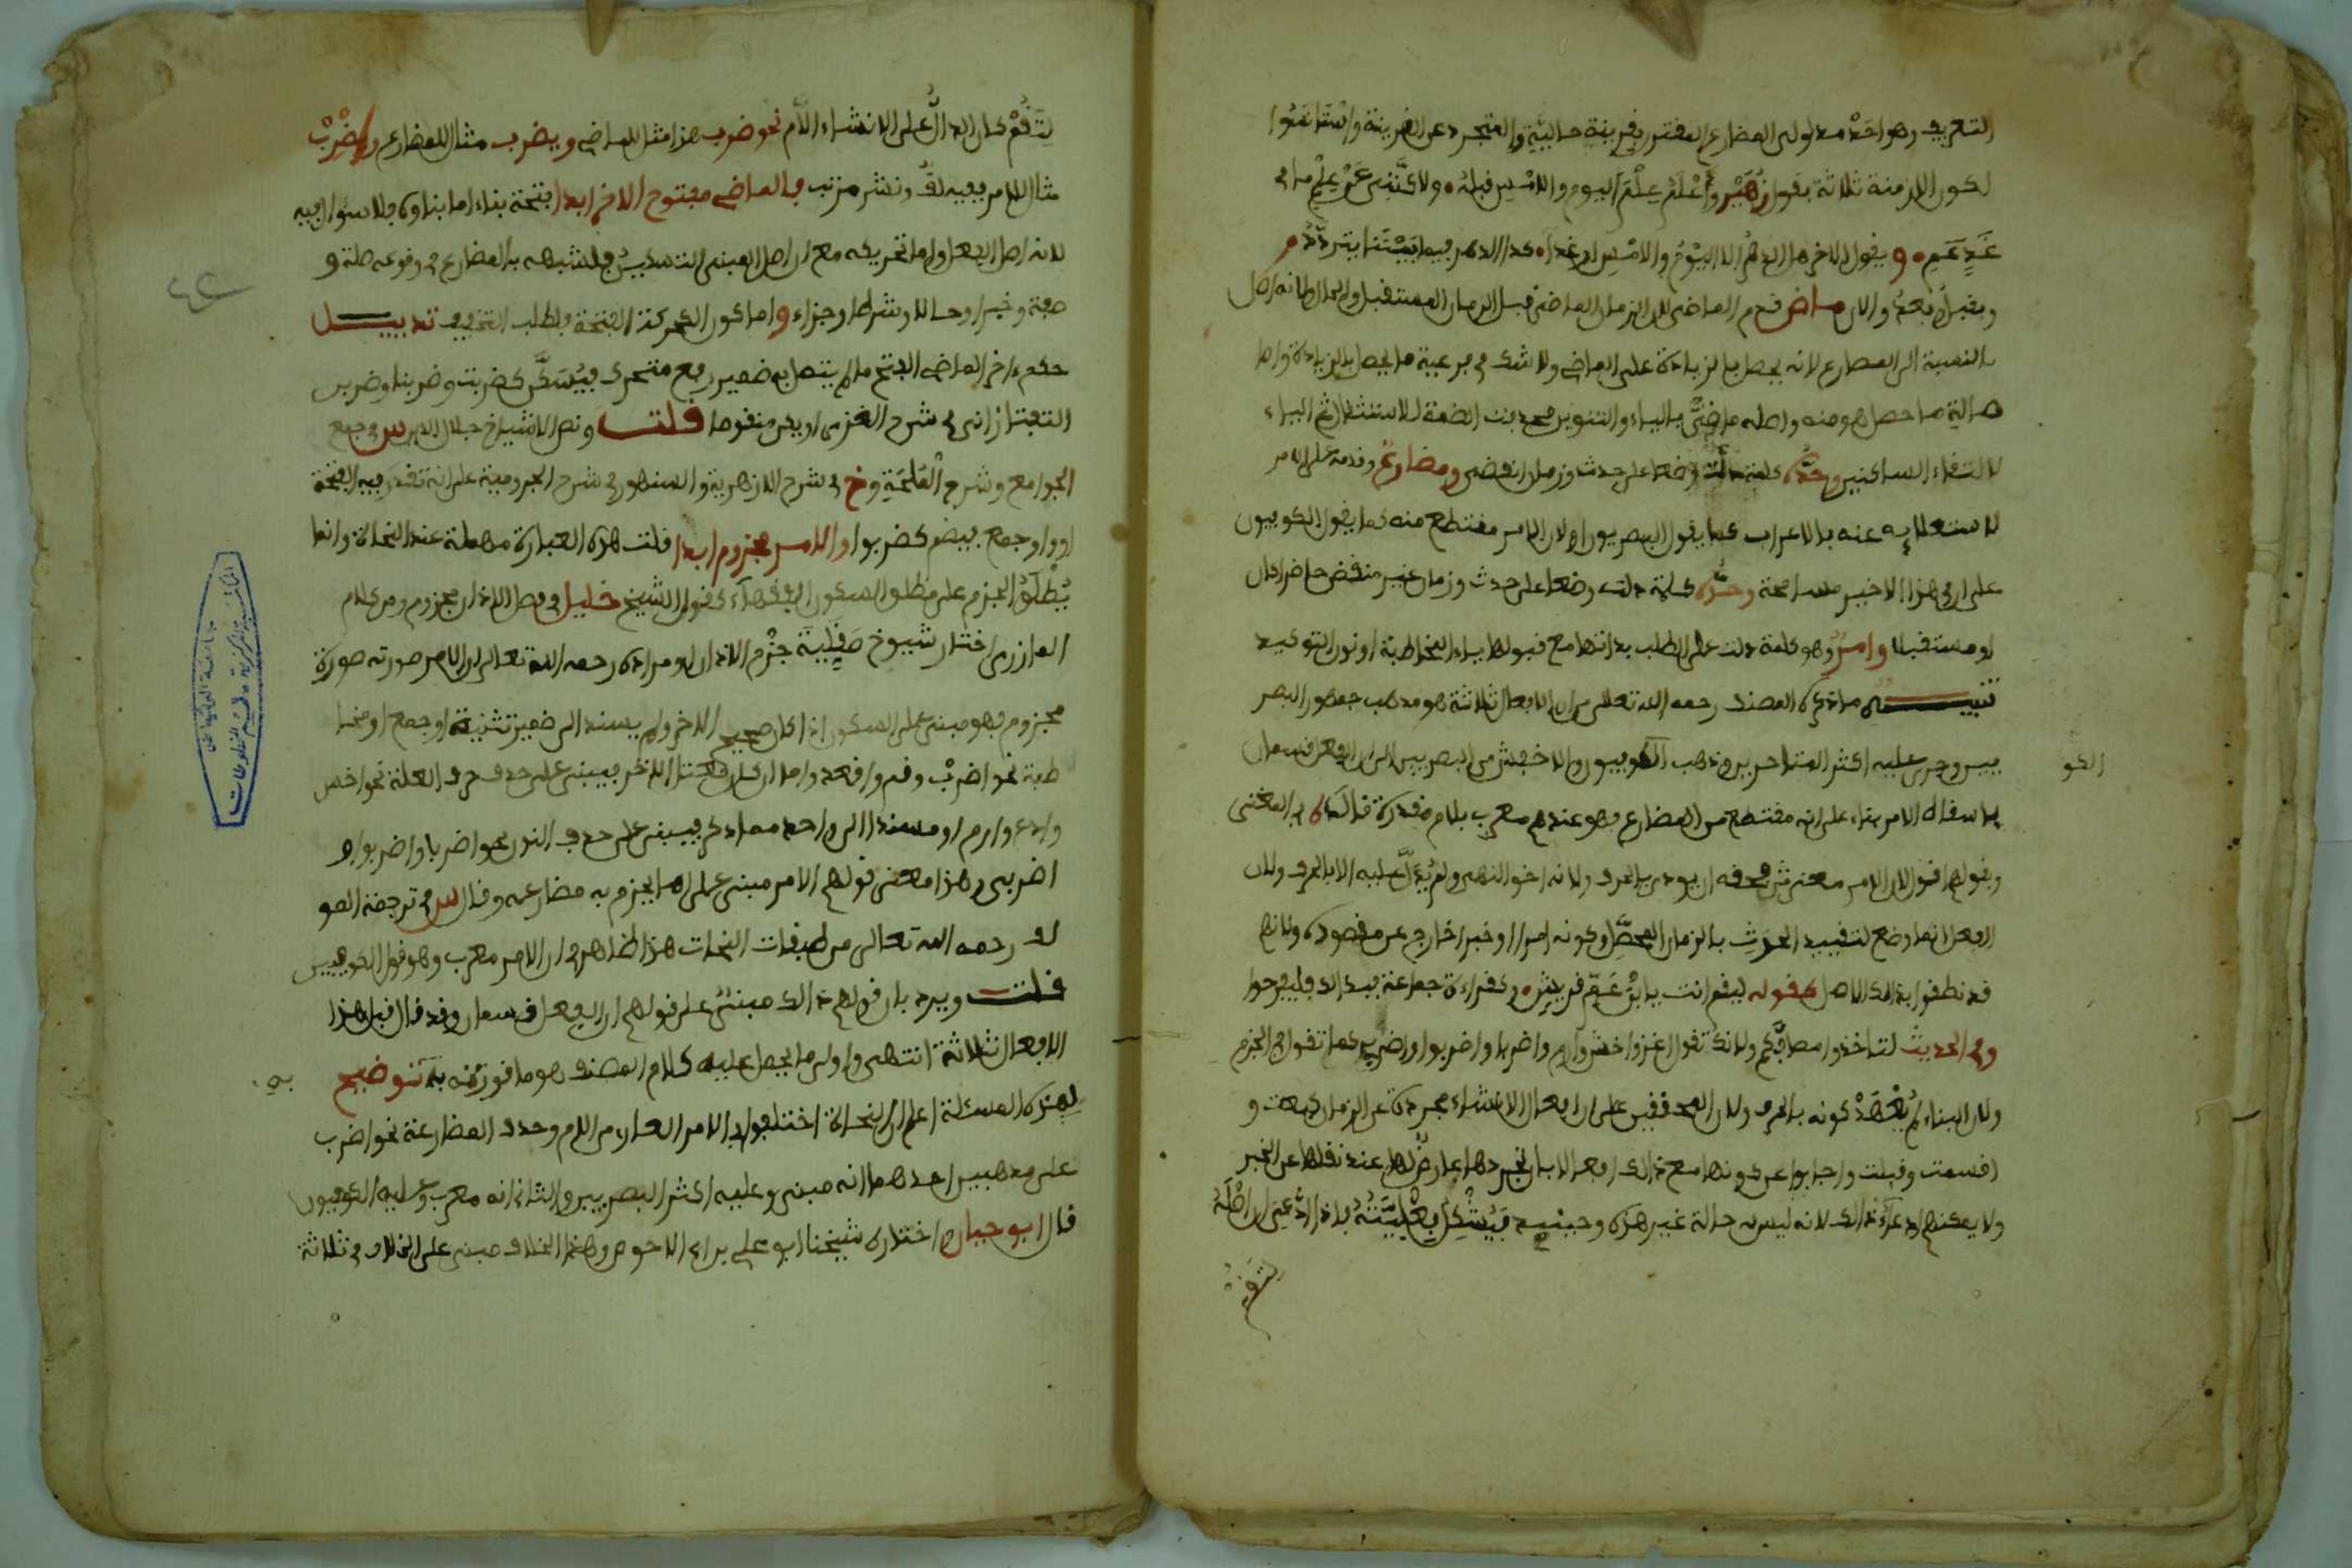 التعريف وهو احد مدلولى المضارع المقترن بقرينة حالية والمتجرد عن القرينة واستانفوا
لكون الازمنة ثلاثة بقول زهير واعلم علم اليوم والامس قبله ولاكننى عن علم ما فى
غد عم و يقول الاخر هل الدهر الا اليوم والامس او غدا كذا الدهر فيما بيننا يتردد
وبقبل نعم والان ماض قدم الماضى لان الزمان الماضى قبل الزمان المستقبل والحال او لانه اصل
بالنسبة الى المضارع لانه يحصل بالزيادة على الماضى ولا شك فى فرعية ما يحصل بالزيادة واصا
لة ما حصل هو منه واصله ماضى بالياء والتنوين فحذفت الضمة للاستثقال ثم الياء
لالتقاء الساكنين وحده كلمة دلت وضعا على حدث وزمان انقضى ومضارع وقدمه على الامر
لاستعلايه عنه بالاعراب كما يقول البصريون او لان الامر مقتطع منه كما يقول الكوفيون
على ان فى هذا الاخير مسامحة وحده كلمة دلت وضعا على حدث وزمان غير منقض حاضرا كان
او مستقبلا وامر وهو كلمة دلت على الطلب بذاتها مع قبولها ياء المخاطبة او نون التوكيد
تنبيه ما ذكره المصنف رحمه الله تعالى من ان الافعال ثلاثة هو مذهب جمهور البصر
يين وجرى عليه اكثر المتاخرين وذهب الكوفيون والاخفش من البصريين الى ان الفعل قسمان
باسقاط الامر بناء على انه مقتطع من المضارع فهو عندهم معرب بلام مقدرة قال فى المغنى
وبقولهم اقول لان الامر معنى فحقه ان يودى بالحرف ولانه اخو النهى ولم يدل عليه الا بالحرف ولان
الفعل انما وضع لتقييد الحدث بالزمان المحصل وكونه امرا او خبرا خارج عن مقصوده ولانهم
قد نطقوا بذلك الاصل كقوله لتقم انت يا ابن خير قريش وكقراءة جماعة فبذلك فلتفرحوا
وفى الحديث لتاخذوا مصافكم ولانك تقول اغز واخش وارم واضربا واضربوا واضربى كما تقول فى الجزم
ولان البناء لم يعهد كونه بالحذف ولان المحققين على ان افعال الانشاء مجردة عن الزمان كبعت و
اقسمت وقبلت واجابوا عن كونها مع ذلك افعالا بان تجردها عارض لها عند نقلها عن الخبر
ولا يمكنهم ادعاء ذلك لانه ليس له حالة غير هذه وحينئذ فيشكل فعليته فاذا ادعى ان اصله
لتقم
الكو
لتقم كان الدال على الانشاء اللام نحو ضرب هذا مثال للماضى ويضرب مثال للمضارع واضرب
مثال للامر ففيه لف ونشر مرتب فالماضى مفتوح الاخر ابدا فتحة بناء اما بناوه فلا سوال فيه
لانه اصل الافعال واما تحريكه مع ان اصل المبنى التسكين فلشبهه بالمضارع فى وقوعه صلة و
صفة وخبرا وحالا وشرطا وجزاء واما كون الحركة الفتحة فلطلب التخفيف تذييل
حكم اخر الماضى الفتح ما لم يتصل به ضمير رفع متحرك فيسكن كضربت وضربنا وضربن
التفتازانى فى شرح العزى او يكن منقوصا قلت ونص الاشياخ جلال الدين س فى جمع
الجوامع وشرح الملحة وخ فى شرح الازهرية والسنهورى فى شرح الجرومية على انه تقدر فيه الفتحة
او واو جمع فيضم كضربوا والامر مجزوم ابدا قلت هذه العبارة مهملة عند النحاة وانما
يطلق الجزم على مطلق السكون الفقهاء كقول الشيخ خليل فى فصل الاذان مجزوم ومن كلام
المازرى اختار شيوخ صقلية جزم الاذان ومراده رحمه الله تعالى ان الامر صورته صورة
مجزوم فهو مبنى على السكون اذا كان صحيح الاخر ولم يسند الى ضمير تثنية او جمع او مخا
طبة نحو اضرب وقم واقعد واما ان كان معتل الاخر فيبنى على حذف حرف العلة نحو اخش
وادع وارم او مسندا الى واحد مما ذكر فيبنى على حذف النون نحو اضربا واضربوا و
اضربى وهذا معنى قولهم الامر مبنى على ما يجزم به مضارعه وقال س فى ترجمة المو
لف رحمه الله تعالى من طبقات النحات هذا ظاهر فى ان الامر معرب وهو قول الكوفيين
قلت ويرد بان قولهم ذلك مبنى على قولهم ان الفعل قسمان وقد قال قبل هذا
الافعال ثلاثة انتهى واولى ما يحمل عليه كلام المصنف هو ما قررته به توضيح
لهذه المسئلة اعلم ان النحاة اختلفوا فى الامر العارى من اللام وحذف المضارعة نحو اضرب
على مذهبين احدهما انه مبنى وعليه اكثر البصريين والثانى انه معرب وعليه الكوفيون
قال ابو حيان واختاره شيخنا ابو على بن ابى الاحوص وهذا الخلاف مبنى على الخلاف فى ثلاثة